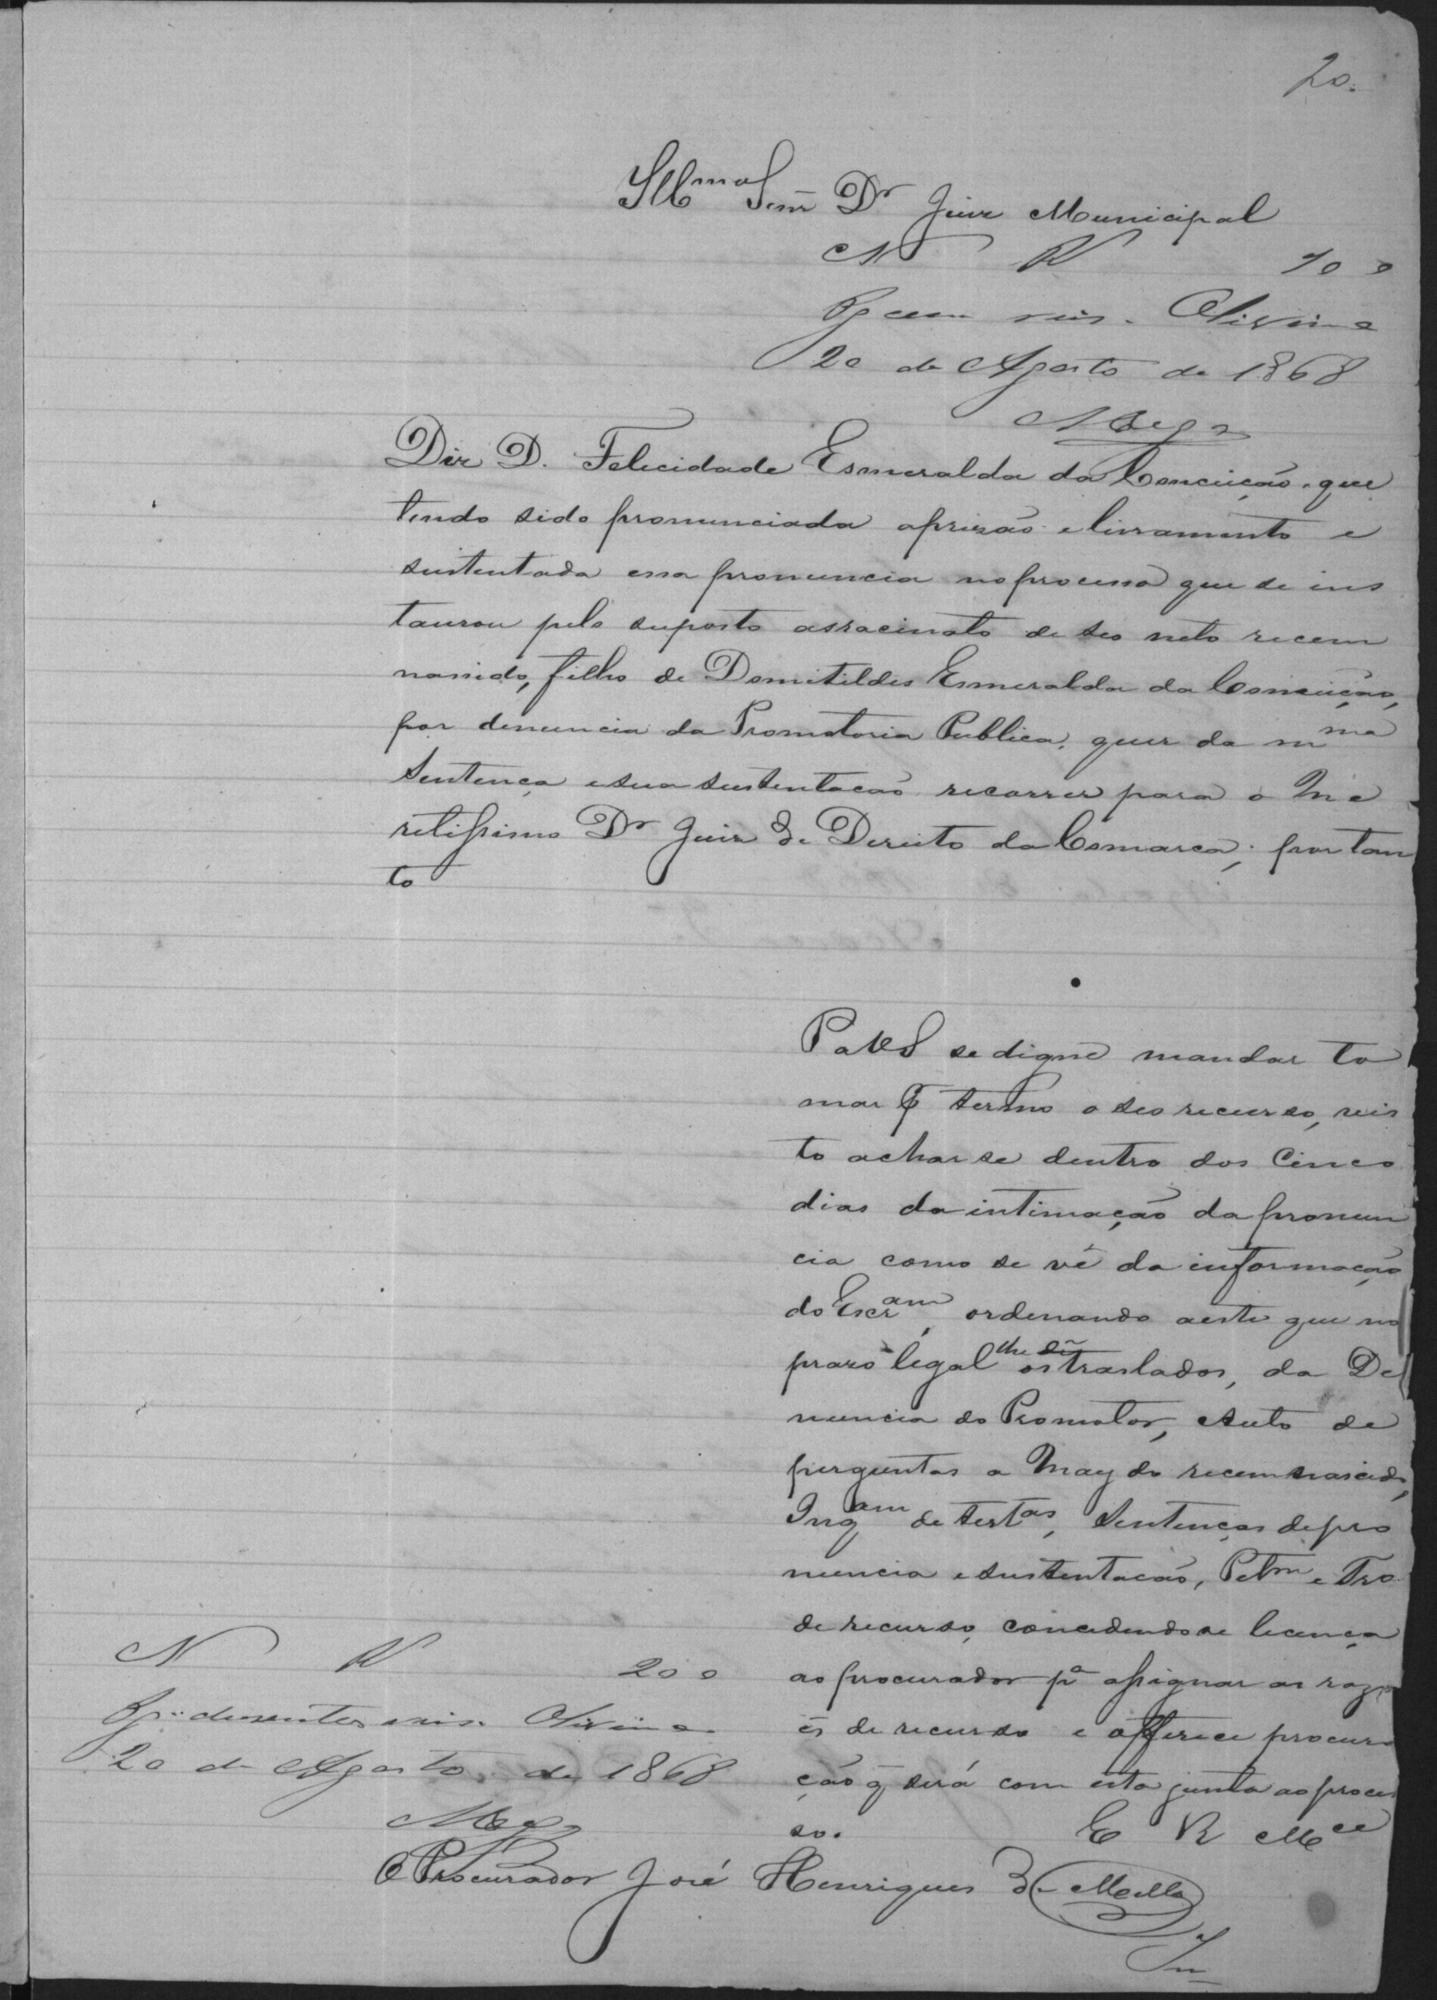 20.
Illmo Senr Dr Juiz Municipal
N R 100
Pg cem reis. Oliveira
20 de Agosto de 1868
Diz D. Felicidade Esmeralda da Conceição, que
tendo sido pronunciada aprizão e livramento e
sustentada essa pronuncia no processo que se ins
taurou pelo suposto assacinato de seo neto recem
nascido, filho de Domitildes Esmeralda da Conceição,
por denuncia da Promotoria Publica, quer da mma
Sentença e sua sustentacão recorrer para o Me
retissimo Dr Juiz de Dereito da Comarca; por tan
to
P a VS se digne mandar to
mar p termo o seo recurso, vis
to achar se dentro dos Cinco
dias da intimação da pronun
cia como se vê da informação
do Escram, ordenando a este que no
prazo legal lhe dê os traslados, da De
nuncia do Promotor, Auto de
perguntas a May do recemnascido,
Inqam de testas, Sentenças de pro
nuncia e sustentacão, Petm e Tro
de recurso, concedendose licença
ao procurador pa assignar as razo
es de recurso e offerece procura
ção q̃ será com esta junta ao proces
so.
E R Mce
N R 200
Pg duzentos reis. Oliveira
20 de Agosto de 1868
O Procurador José Henriques de Mello